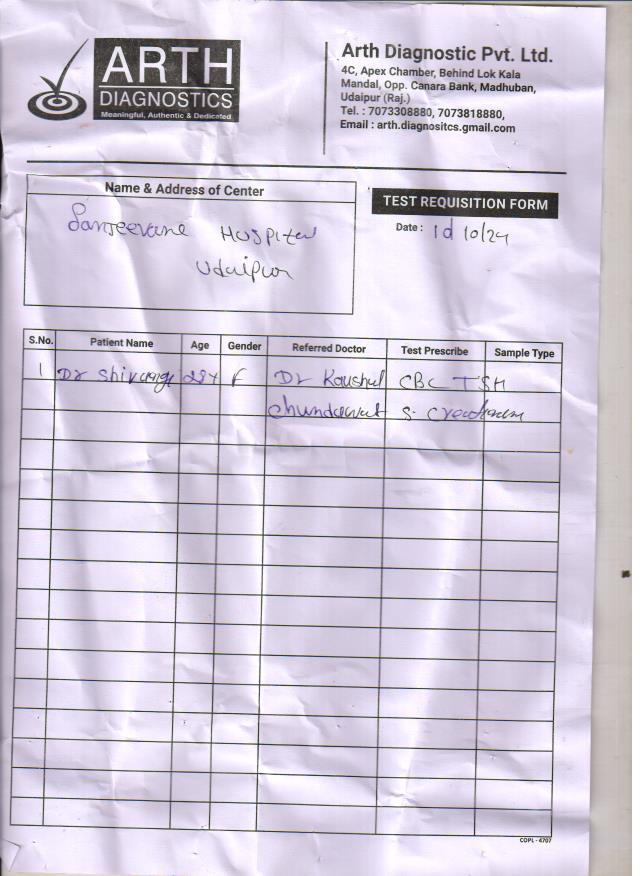 ARTH
DIAGNOSTICS
Meaningful, Authentic & Dedicated
Arth Diagnostic Pvt. Ltd.
4C, Apex Chamber, Behind Lok Kala
Mandal, Opp. Canara Bank, Madhuban,
Udaipur (Raj.)
Tel. : 7073308880, 7073818880,
Email : arth.diagnositcs.gmail.com
Name & Address of Center
Hospital
Udaipur
TEST REQUISITION FORM
Date : 10/24
S.No. Patient Name Age Gender Referred Doctor Test Prescribe Sample Type
1 Dr F Dr Kaushal CBC TSH
Chundawat S.
COPL - 4707